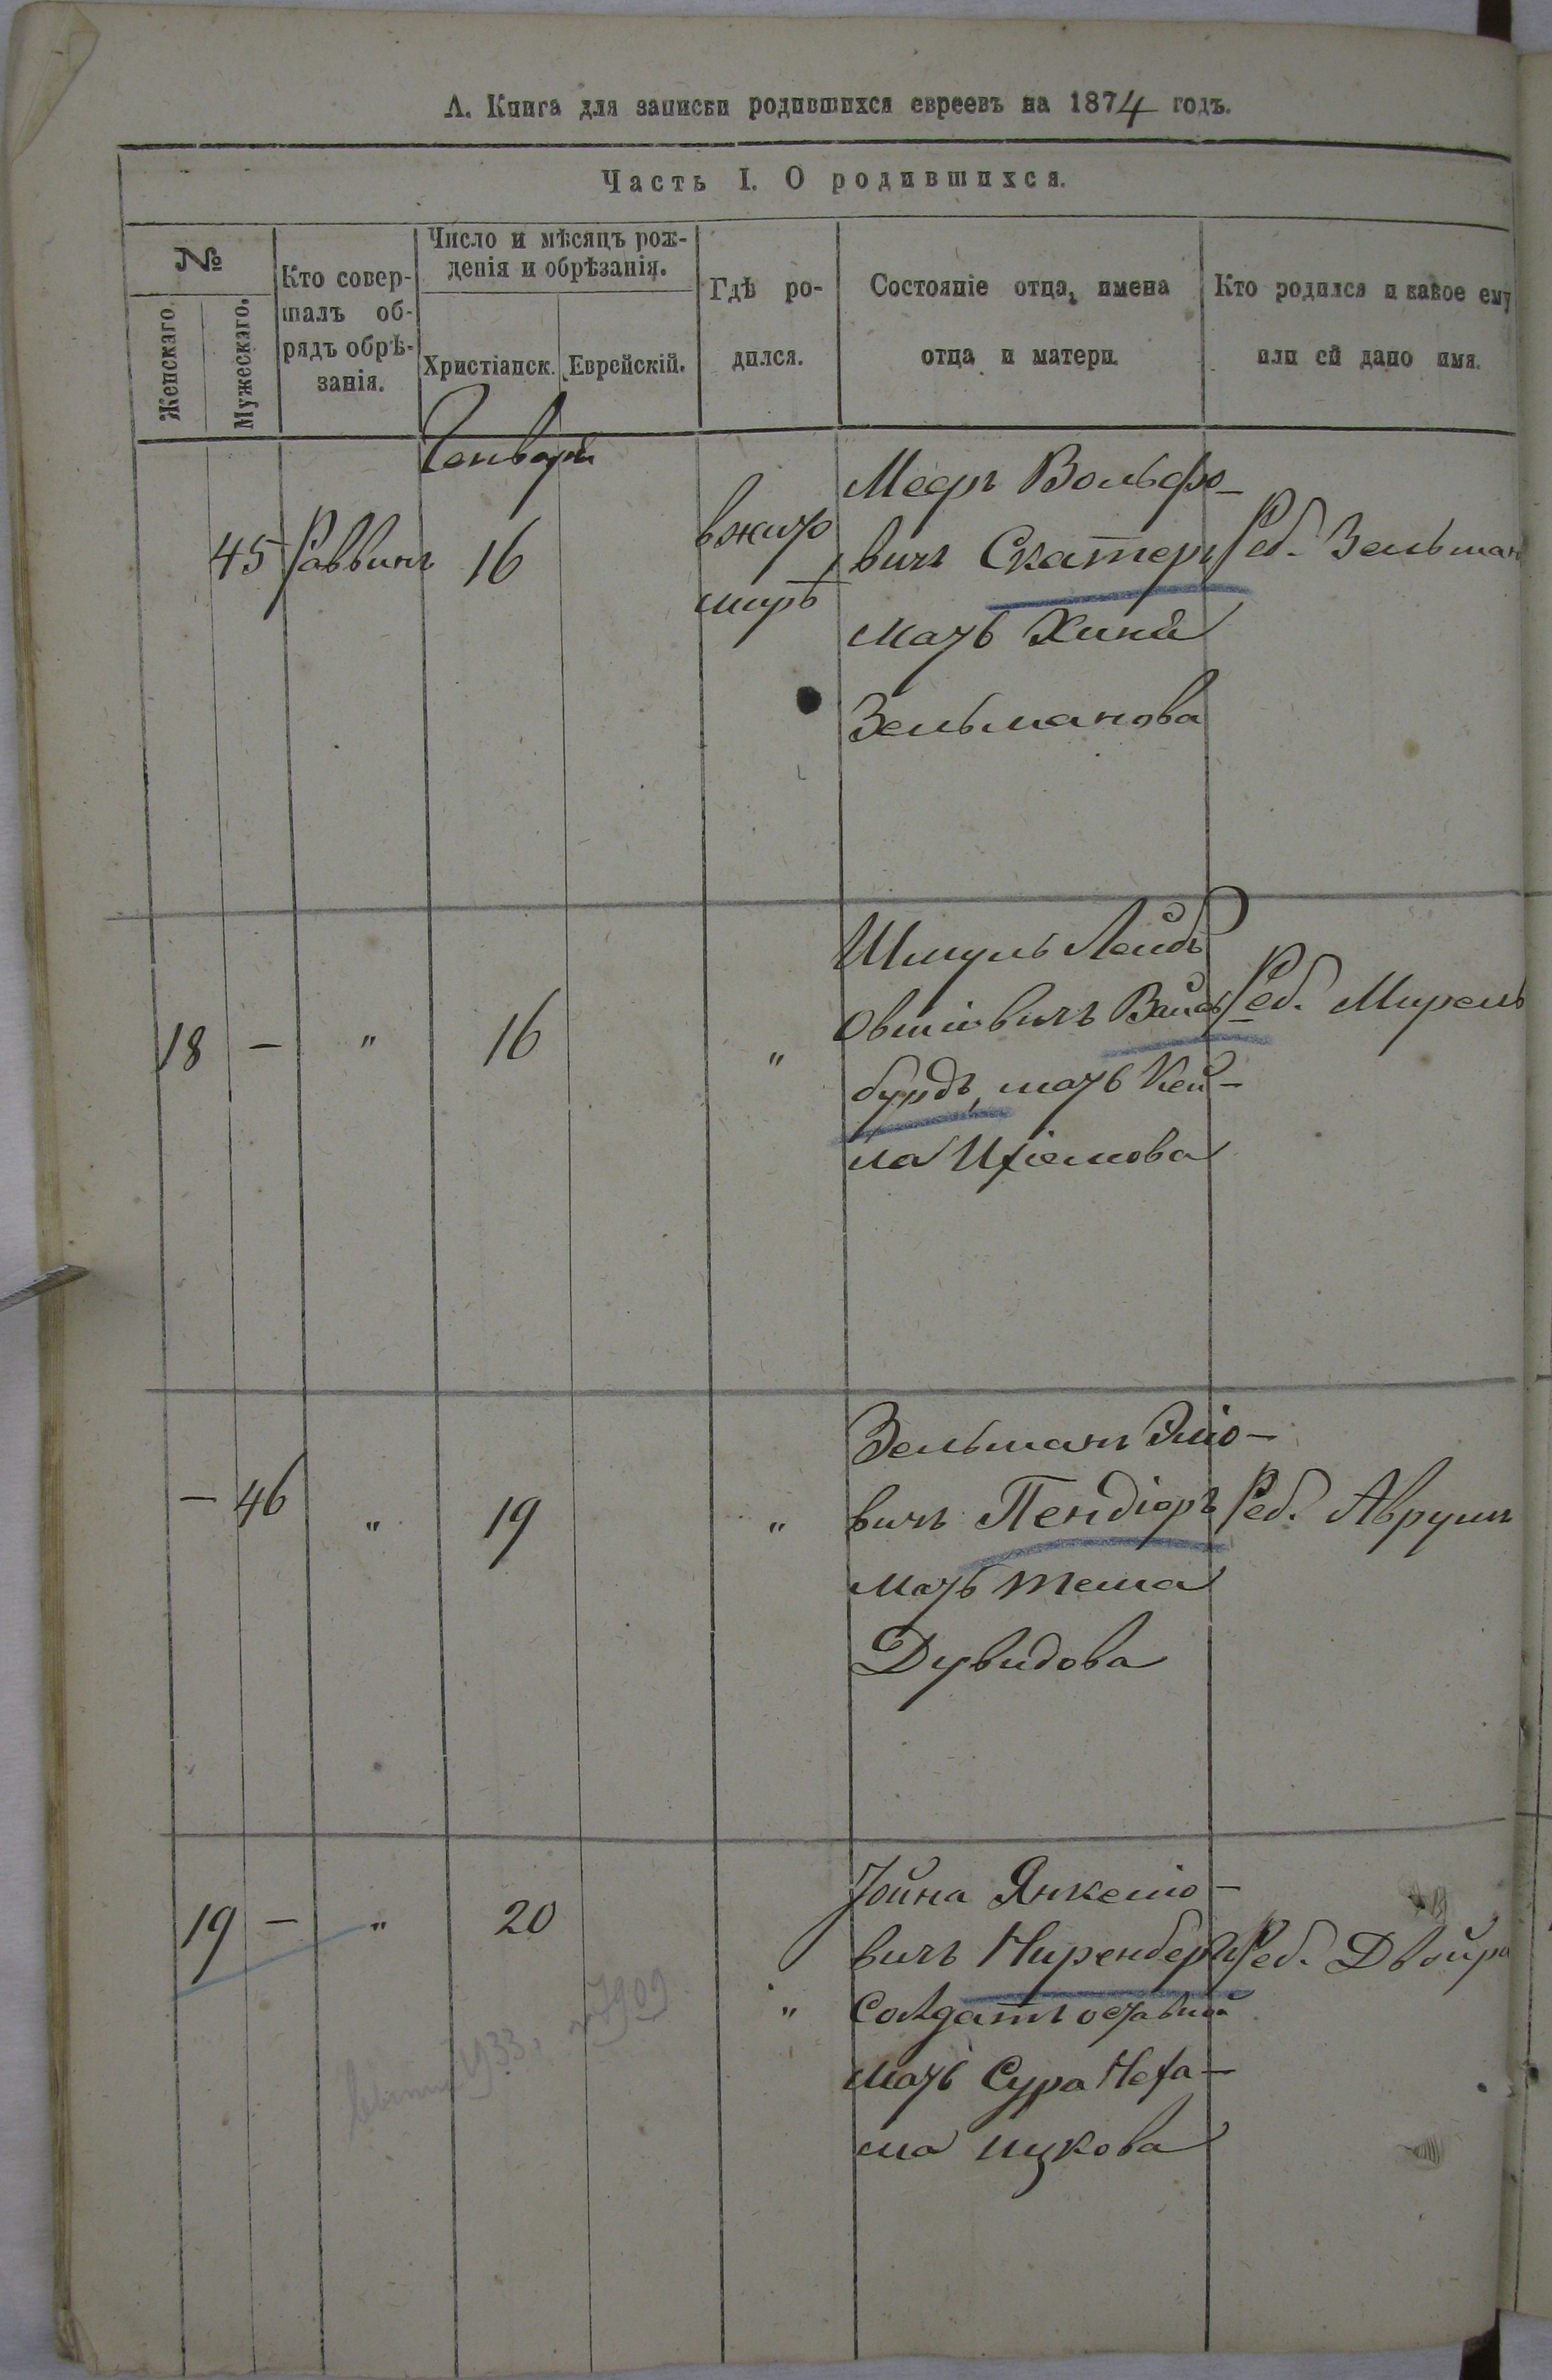 А. Книга для записки родившихся евреевъ на 1874 годъ.
Часть I. О родившихся.
№
Женскаго.
Мужескаго.
Кто совер-
шалъ об-
рядъ обрѣ-
занія.
Число и мѣсяцъ рож-
денія и обрѣзанія.
Христіанск.
Еврейскій.
Гдѣ ро-
дился.
Состояніе отца, имена
отца и матери.
Кто родился и какое ему
или ей дано имя.
Генваря
45 Раввинъ 16
в жито
миръ
Мееръ Вольфо-
вичъ Скатеръ
мать Хина
Зельманова
Реб. Зельман
18 — " 16 "
Шмуль Лейбъ
Овшіевичъ Вайс
бундъ, мать Кей-
ла
Реб. Мирель
— 46 " 19 "
Зельманъ Эліо-
вичъ Пендіоръ
мать теша
Дувидова
Реб. Аврумъ
19 — " 20 "
Іойна Янкеліо-
вичъ Ниренбергъ
Солдатъ
мать Сура Неха-
ма ицкова
Реб. Двойра
1909